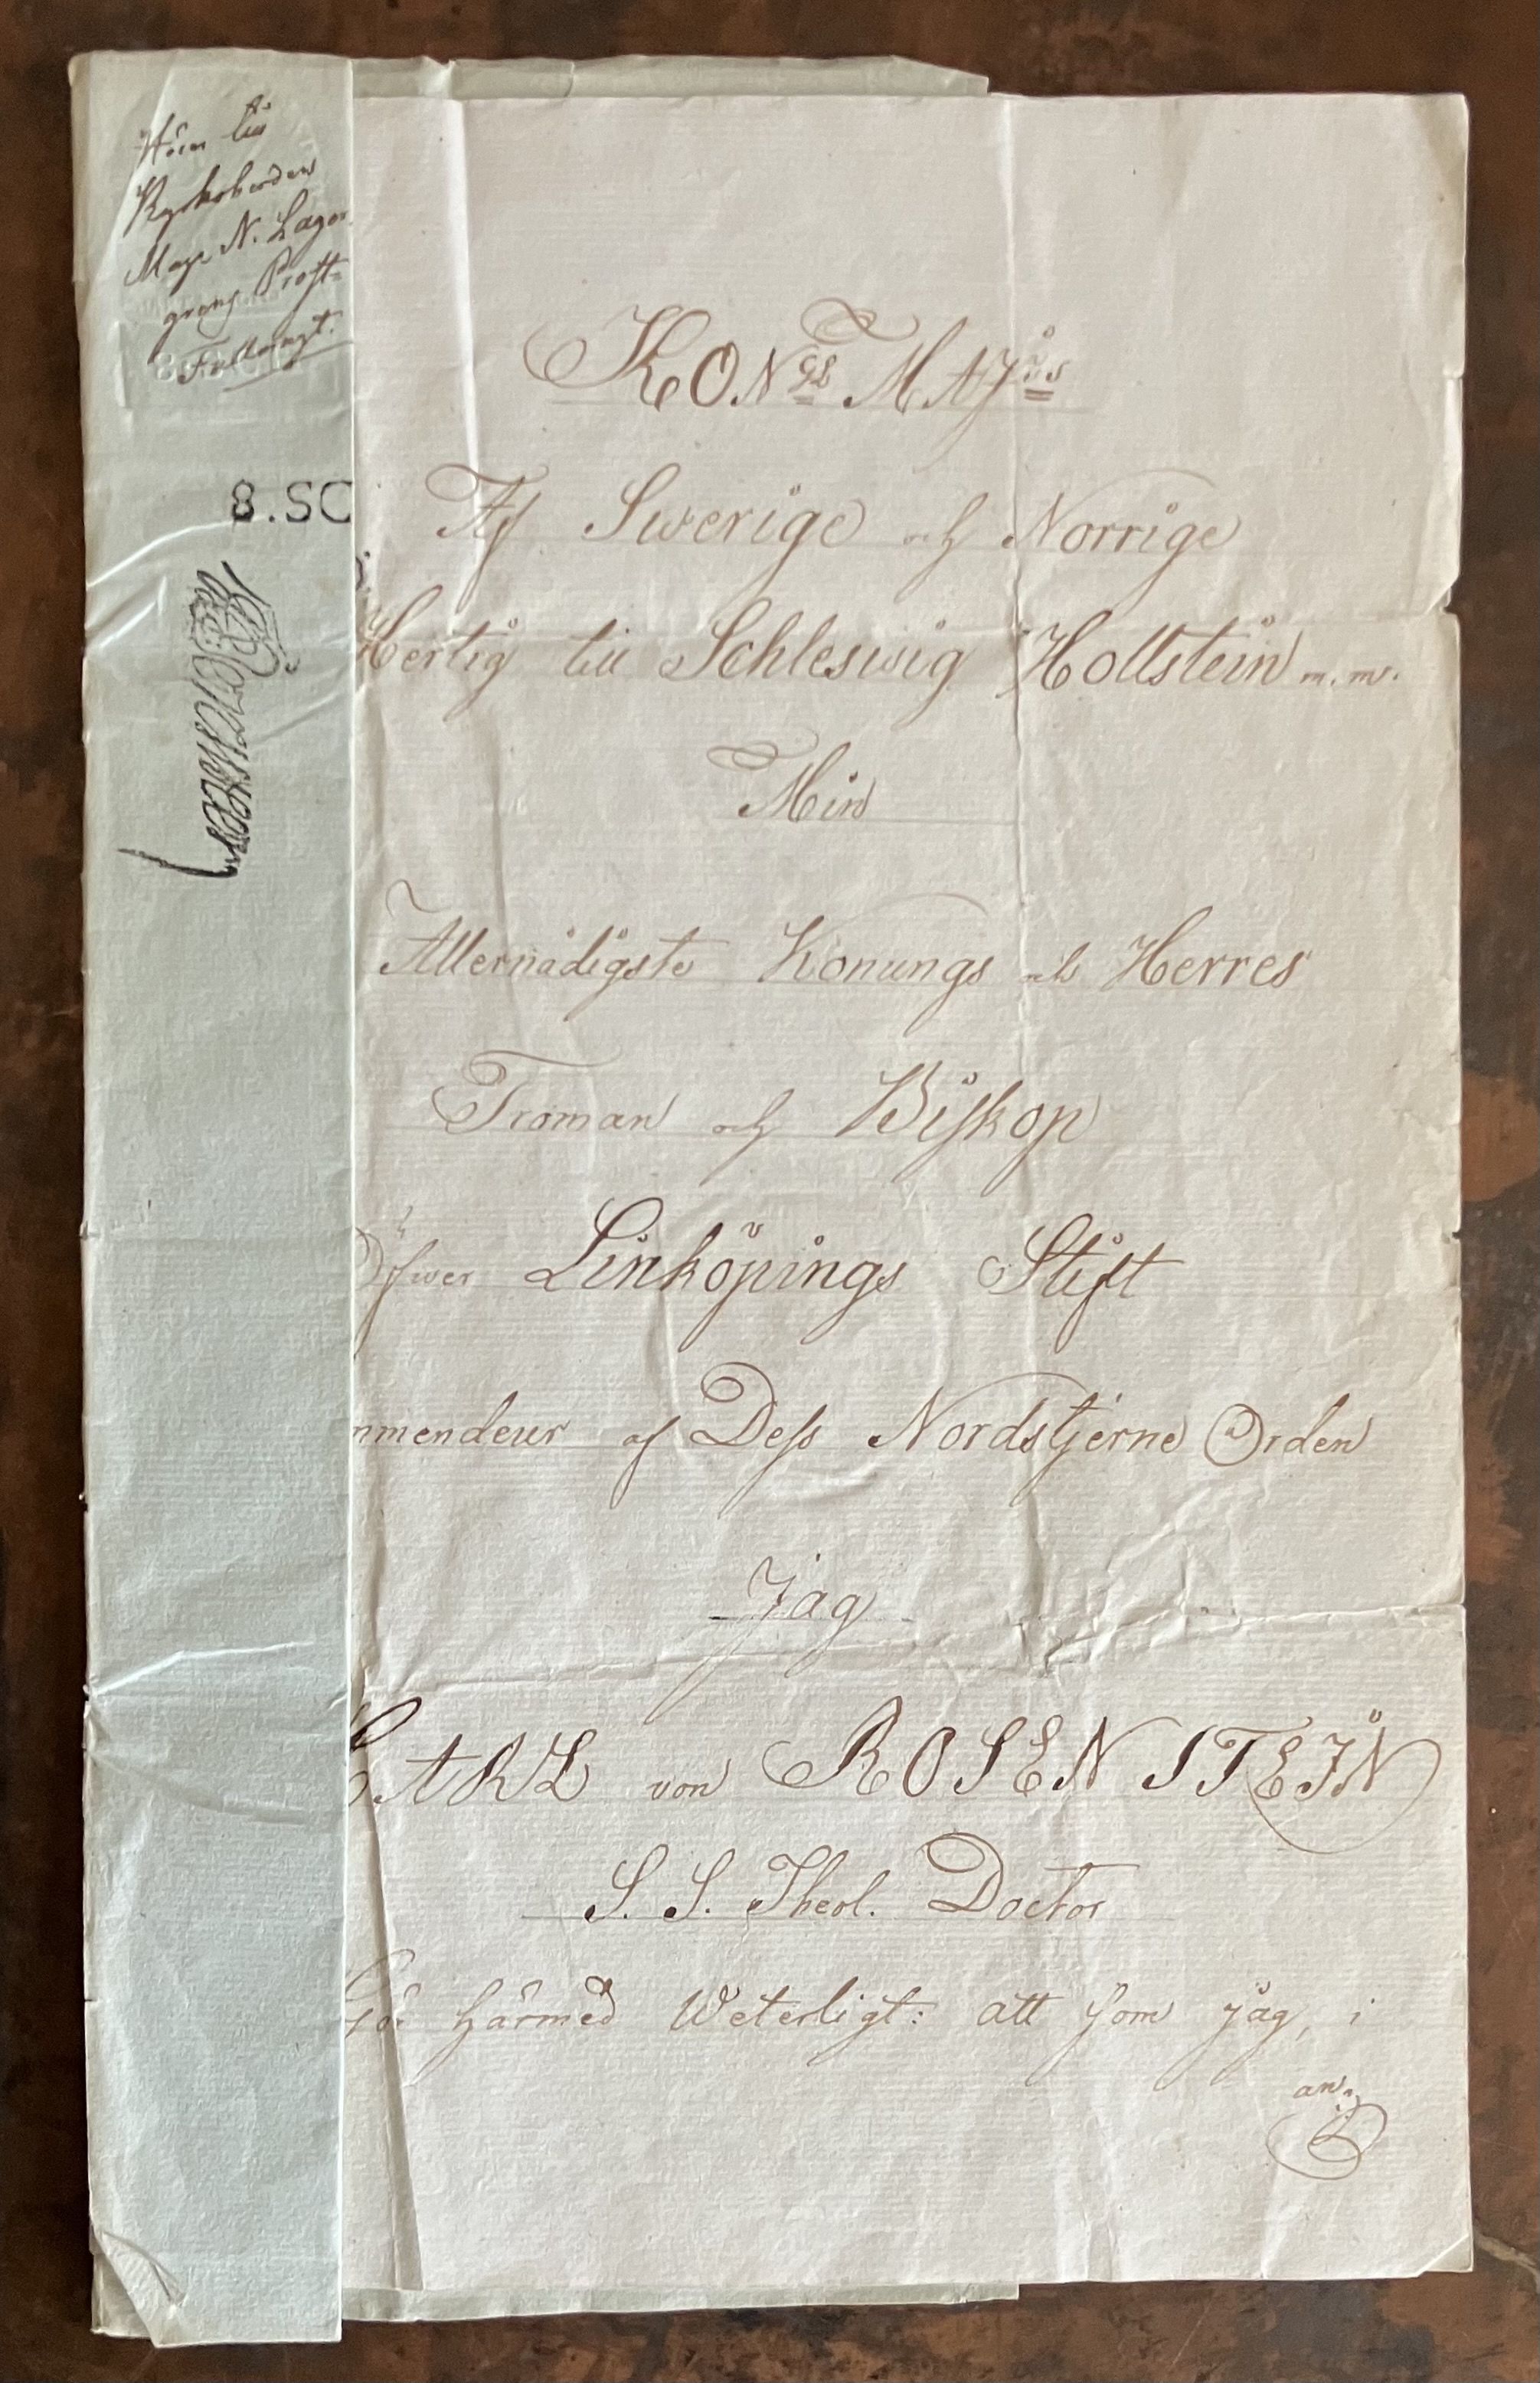 till
Mag. N. Lager-
Prost-
8.SC
KONGL MAJ:TS
Af Swerige och Norrige
Hertig till Schleswig Hollstein m.m.
Min
Allernådigste Konungs och Herres
Troman och Biskop
Öfwer Linköpings Stift
mmendeur af Dess Nordstjerne Orden
Jag
CARL von ROSENSTEIN
S. S. Theol. Doctor
Gör härmed Weterligt: att som jag, i
an-